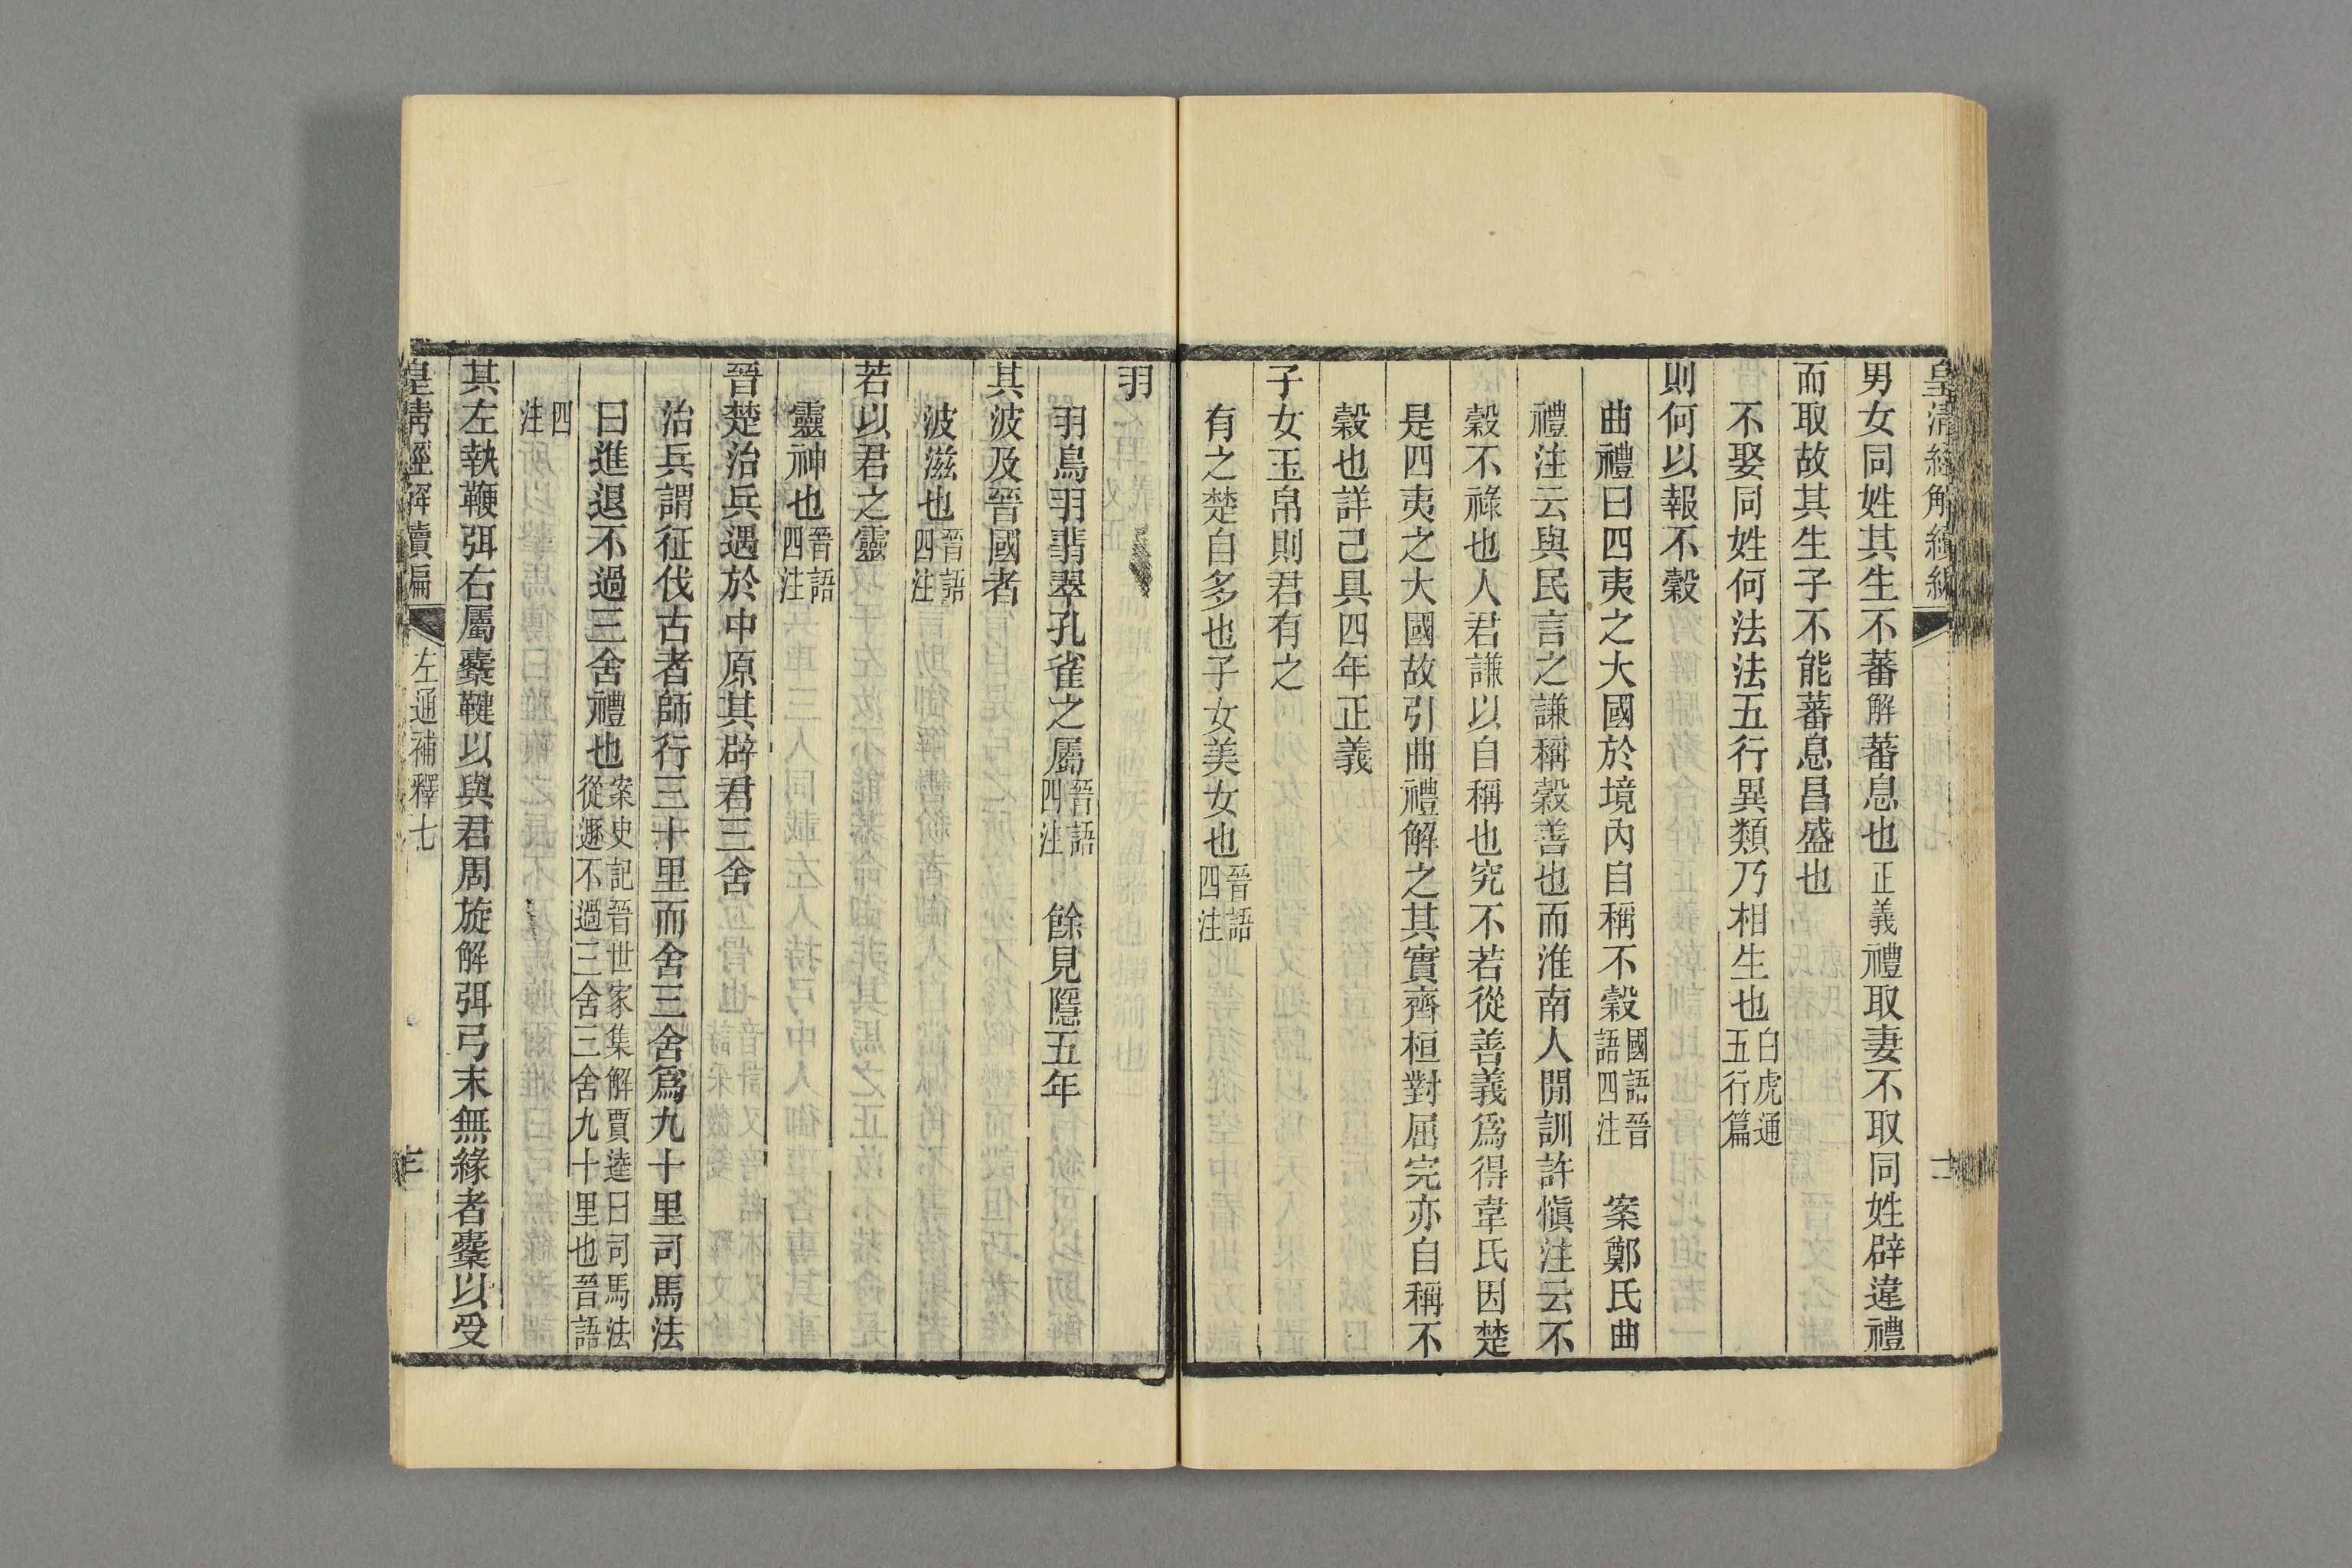 皇清經解續編
男女同姓其生不蕃解蕃息也正義禮取妻不取同姓辟違禮
而取故其生子不能蕃息昌盛也
不娶同姓何法法五行異類乃相生也白虎通五行篇
則何以報不穀
曲禮曰四夷之大國於境內自稱不穀國語晉語四注 案鄭氏曲
禮注云與民言之謙稱穀善也而淮南人閒訓許愼注云不
穀不祿也人君謙以自稱也究不若從善義爲得韋氏因楚
是四夷之大國故引曲禮解之其實齊桓對屈完亦自稱不
穀也詳己具四年正義
子女玉帛則君有之
有之楚自多也子女美女也晉語四注
羽
羽鳥羽翡翠孔雀之屬晉語四注 餘見隱五年
其波及晉國者
波滋也晉語四注
若以君之靈
靈神也晉語四注
晉楚治兵遇於中原其辟君三舍
治兵謂征伐古者師行三十里而舍三舍爲九十里司馬法
曰進退不過三舍禮也案史記晉世家集解賈逵曰司馬法從遯不過三舍三舍九十里也晉語
四注
其左執鞭弭右屬櫜鞬以與君周旋解弭弓末無緣者櫜以受
皇清經解續編 左通補釋七